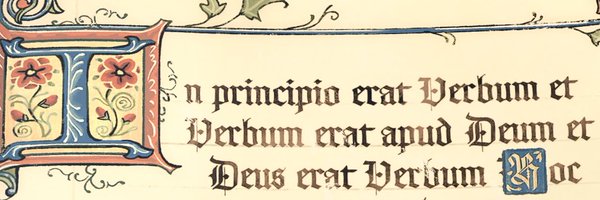 In principio erat Verbum et
Verbum erat apud Deum et
Deus erat Verbum Hoc